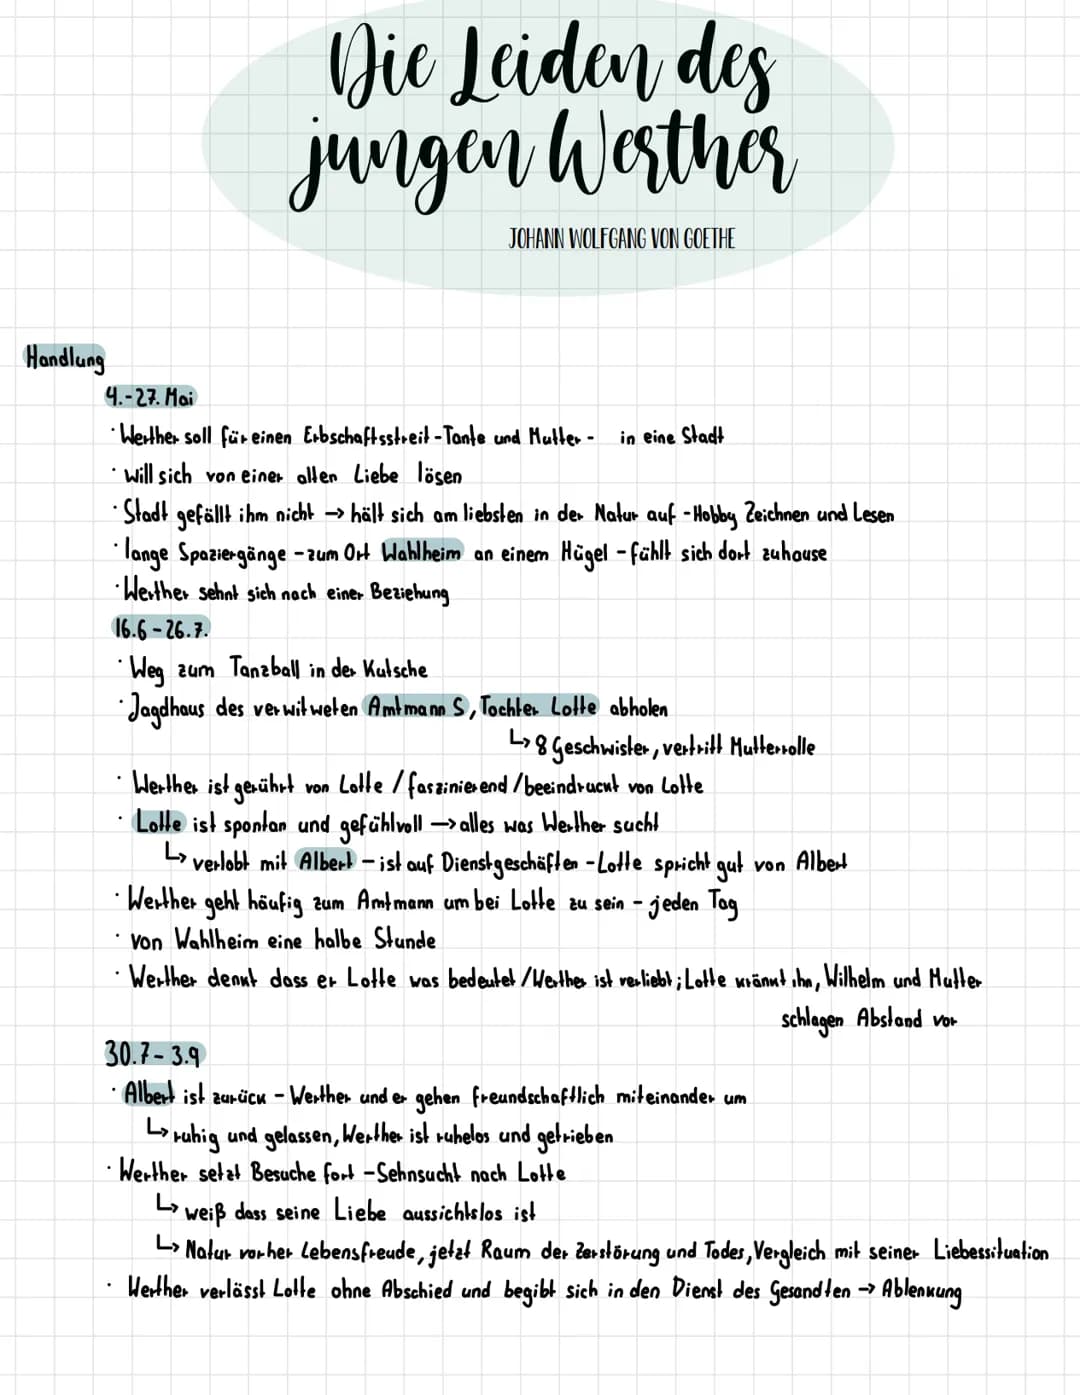 Die Leiden des
jungen Werther
JOHANN WOLFGANG VON GOETHE
Handlung
4.-27. Mai
· Werther soll für einen Erbschaftsstreit - Tante und Mutter - in eine Stadt
· will sich von einer alten Liebe lösen
· Stadt gefällt ihm nicht → hält sich am liebsten in der Natur auf - Hobby Zeichnen und Lesen
· lange Spaziergänge - zum Ort Wahlheim an einem Hügel - fühlt sich dort zuhause
· Werther sehnt sich nach einer Beziehung
16.6 - 26.7.
· Weg zum Tanzball in der Kutsche
· Jagdhaus des verwitweten Amtmann S, Tochter Lotte abholen
↳ 8 Geschwister, vertritt Mutterrolle
· Werther ist gerührt von Lotte / faszinierend / beeindruckt von Lotte
· Lotte ist spontan und gefühlvoll → alles was Werther sucht
↳ verlobt mit Albert - ist auf Dienstgeschäften - Lotte spricht gut von Albert
· Werther geht häufig zum Amtmann um bei Lotte zu sein - jeden Tag
· von Wahlheim eine halbe Stunde
· Werther denkt dass er Lotte was bedeutet / Werther ist verliebt; Lotte kränkt ihn, Wilhelm und Mutter
schlagen Abstand vor
30.7 - 3.9
· Albert ist zurück - Werther und er gehen freundschaftlich miteinander um
↳ ruhig und gelassen, Werther ist ruhelos und getrieben
· Werther setzt Besuche fort - Sehnsucht nach Lotte
↳ weiß dass seine Liebe aussichtslos ist
↳ Natur vorher Lebensfreude, jetzt Raum der Zerstörung und Todes, Vergleich mit seiner Liebessituation
· Werther verlässt Lotte ohne Abschied und begibt sich in den Dienst des Gesandten → Ablenkung